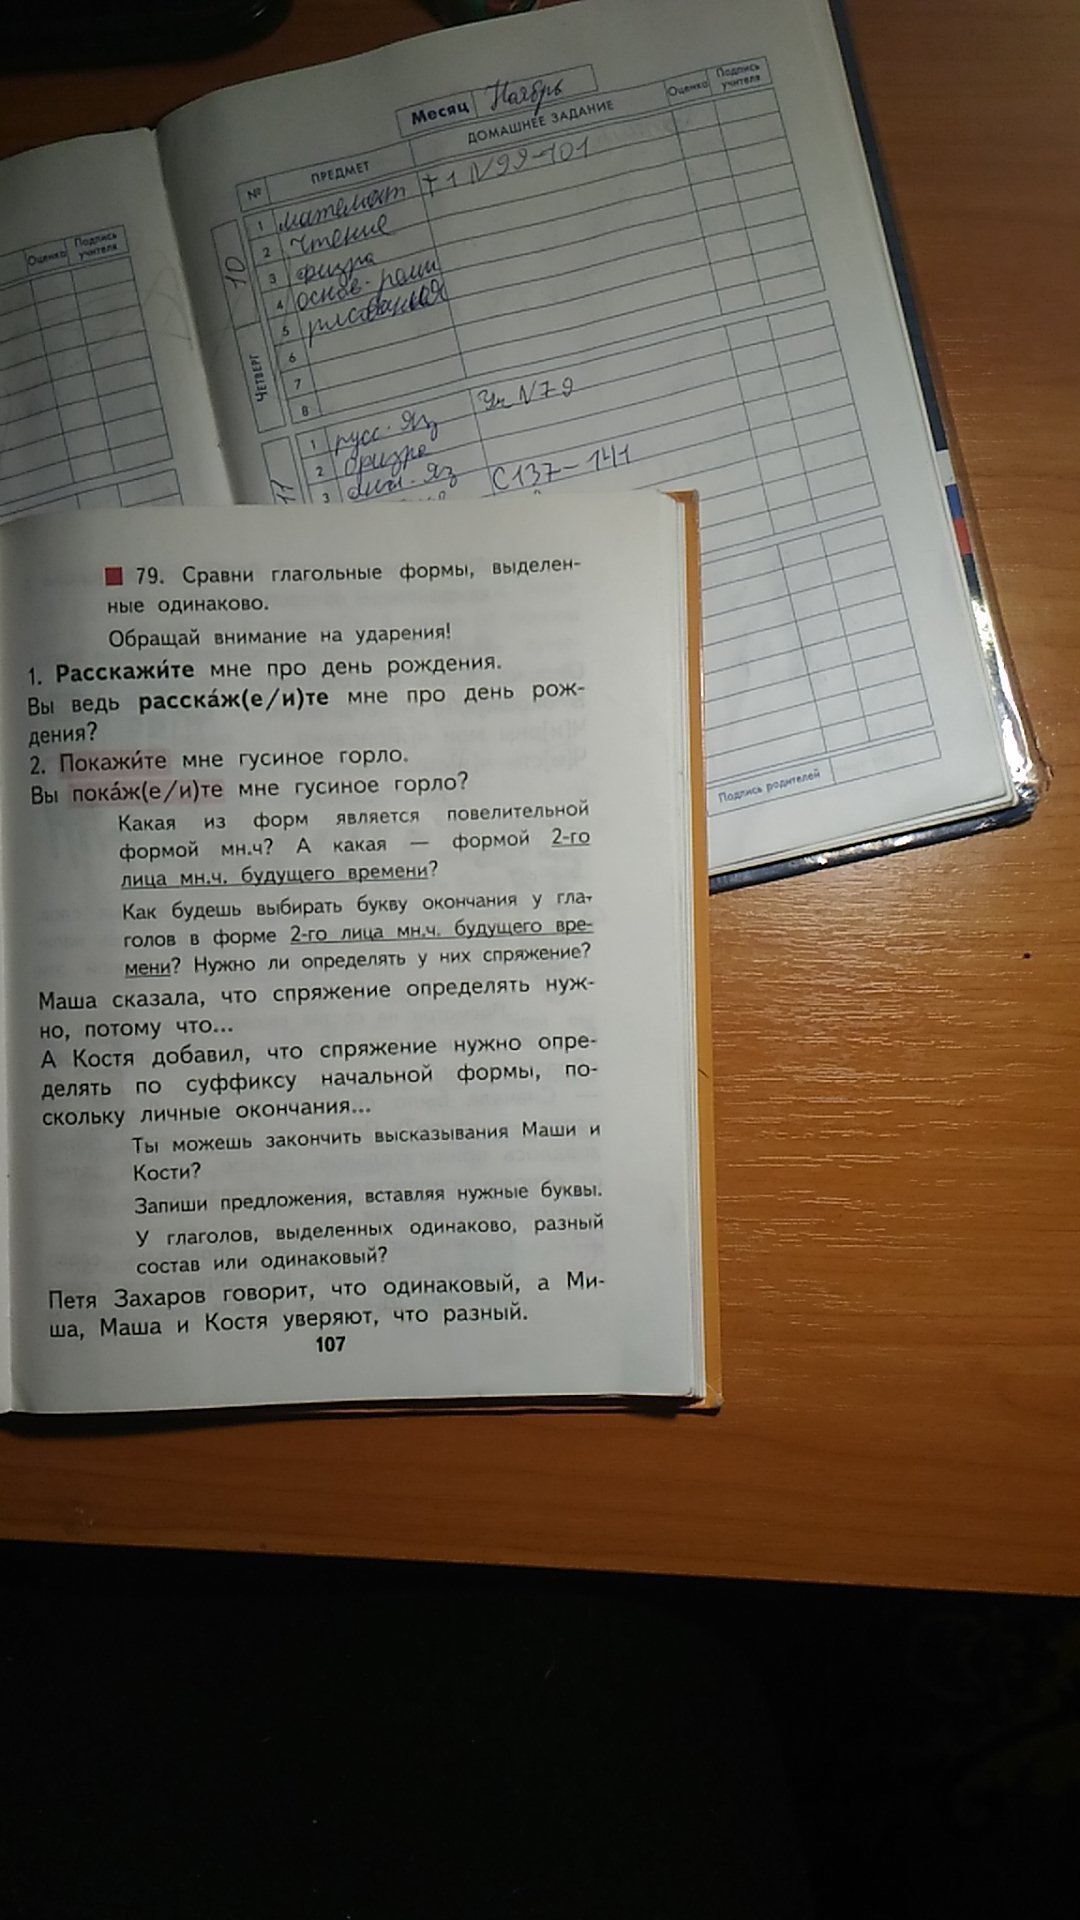 Месяц Ноябрь
№ ПРЕДМЕТ ДОМАШНЕЕ ЗАДАНИЕ Оценка Подпись учителя
10
ЧЕТВЕРГ
1 математ т 1 N 99-101
2 чтение
3 физра
4 основ.
5 рисования
6
7
8
11
1 русс. яз Уч N 79
2 физра
3 англ. яз С 137-141
Оценка Подпись учителя
Подпись родителей
79. Сравни глагольные формы, выделен-
ные одинаково.
Обращай внимание на ударения!
1. Расскажи́те мне про день рождения.
Вы ведь расска́ж(е/и)те мне про день рож-
дения?
2. Покажи́те мне гусиное горло.
Вы пока́ж(е/и)те мне гусиное горло?
Какая из форм является повелительной
формой мн.ч? А какая — формой 2-го
лица мн.ч. будущего времени?
Как будешь выбирать букву окончания у гла-
голов в форме 2-го лица мн.ч. будущего вре-
мени? Нужно ли определять у них спряжение?
Маша сказала, что спряжение определять нуж-
но, потому что...
А Костя добавил, что спряжение нужно опре-
делять по суффиксу начальной формы, по-
скольку личные окончания...
Ты можешь закончить высказывания Маши и
Кости?
Запиши предложения, вставляя нужные буквы.
У глаголов, выделенных одинаково, разный
состав или одинаковый?
Петя Захаров говорит, что одинаковый, а Ми-
ша, Маша и Костя уверяют, что разный.
107